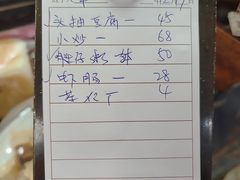 头抽豆腐一 45
小炒一 68
仔粥 50
虾肠一 28
茶位丁 4